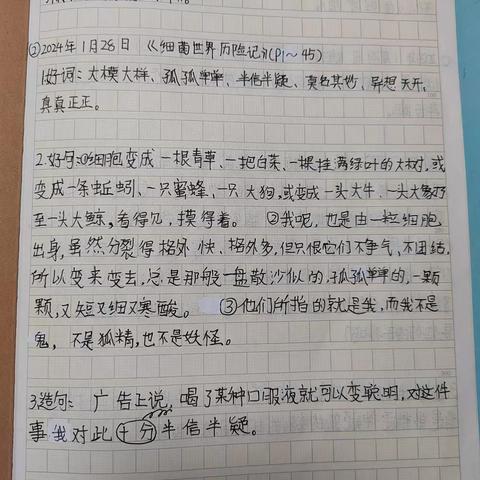 ②2024年1月28日 《细菌世界历险记》(P1~45)
1.好词：大模大样、孤孤单单、半信半疑、莫名其妙、异想天开、
真真正正。
2.好句：①细胞变成一根青草、一把白菜、一棵挂满绿叶的大树，或
变成一条蚯蚓、一只蜜蜂、一只大狗，或变成一头大牛、一头大象乃
至一头大鲸，看得见，摸得着。 ②我呢，也是由一粒细胞
出身，虽然分裂得格外快、格外多，但只恨它们不争气、不团结，
所以变来变去，总是那般一盘散沙似的，孤孤单单的，一颗
颗，又短又细又寒酸。 ③他们所指的就是我，而我不是
鬼，不是狐精，也不是妖怪。
3.造句：广告上说，喝了某种口服液就可以变聪明，对这件
事我对此十分半信半疑。